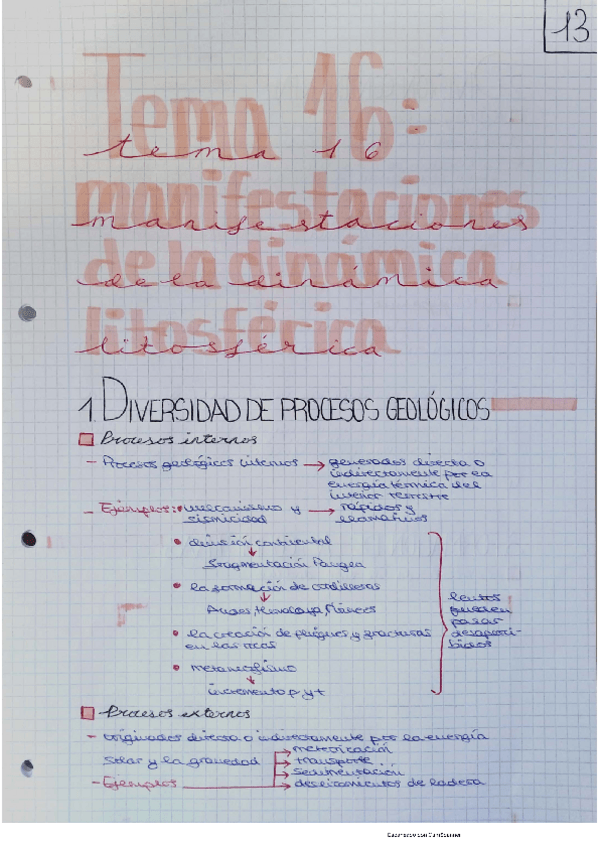 13
Tema 16:
tema 16
manifestaciones
manifestaciones
de la dinámica
de la dinámica
litosférica
litosférica
1. DIVERSIDAD DE PROCESOS GEOLÓGICOS
Procesos internos
- Procesos geológicos internos → generados directa o
indirectamente por la
energía térmica del
interior terrestre
- Ejemplos: • y → rápidos y
sismicidad llamativos
• continental
↓
fragmentación Pangea
• la formación de cordilleras
↓
Andes, Himalaya,
• la creación de pliegues y fracturas
en las rocas
• metamorfismo
↓
incremento p y t
lentos
pueden
pasar
desaperci-
bidos
Procesos externos
- originados directa o indirectamente por la energía
solar y la gravedad
- Ejemplos → meteorización
→ transporte
→ sedimentación
→ deslizamientos de ladera
Escaneado con CamScanner